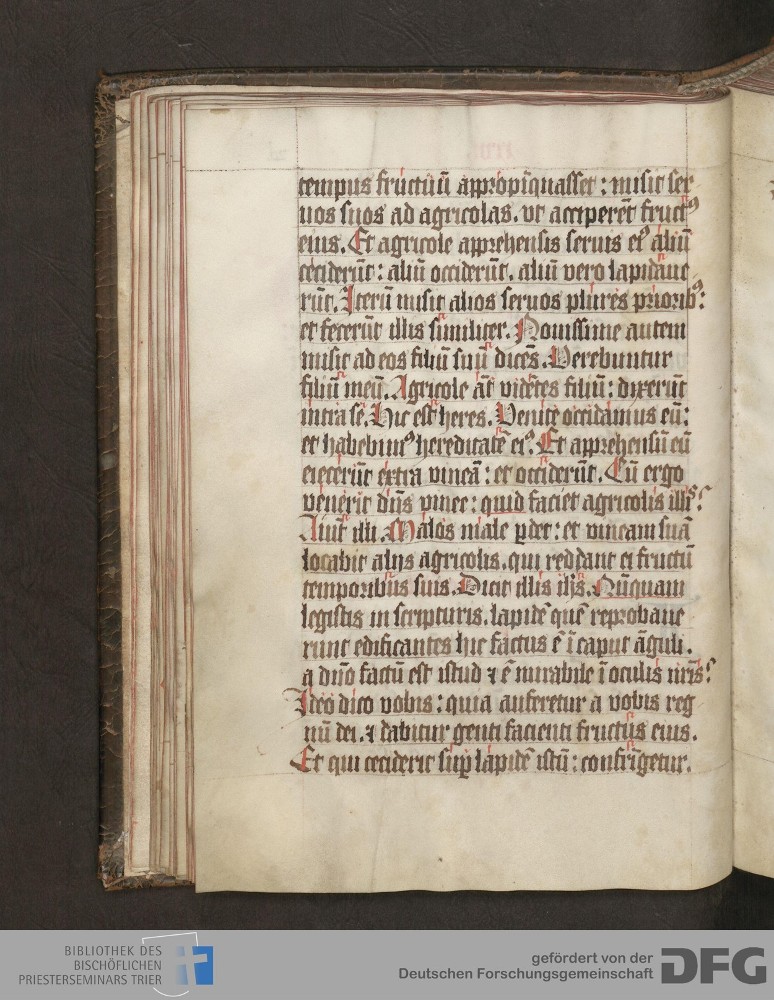 tempus fructuū appropīquasset : misit ser
uos suos ad agricolas. ut acciperēt fruct⁹
eius. Et agricole apprehensis seruis ei⁹ aliū
ceciderūt : aliū occiderūt. aliū vero lapidaue
rūt. Iterū misit alios seruos plures priorib⁹ :
et fecerūt illis similiter. Nouissime autem
misit ad eos filiū suū dicēs. Verebuntur
filiū meū. Agricole āt vidētes filiū : dixerūt
intra sē. Hic est heres. Venite occidamus eū :
et habebim⁹ hereditatē ei⁹. Et apprehensū eū
eiecerūt extra vineā : et occiderūt. Cū ergo
venerit dn̄s vinee : quid faciet agricolis illis ?
Aiūt illi. Malos male ꝑdet : et vineam suā
locabit alijs agricolis. qui reddant ei fructū
temporibus suis. Dicit illis ih̄s. Nūquam
legistis in scripturis. lapidē quē reprobaue
runt edificantes hic factus ē ī caput āguli.
a dn̄o factū est istud ⁊ ē mirabile ī oculis nr̄is ?
Ideo dico vobis : quia auferetur a vobis reg
nū dei. ⁊ dabitur genti facienti fructus eius.
Et qui ceciderit suꝑ lapidē istū : confrīgetur.
BIBLIOTHEK DES
BISCHÖFLICHEN
PRIESTERSEMINARS TRIER
gefördert von der
Deutschen Forschungsgemeinschaft DFG